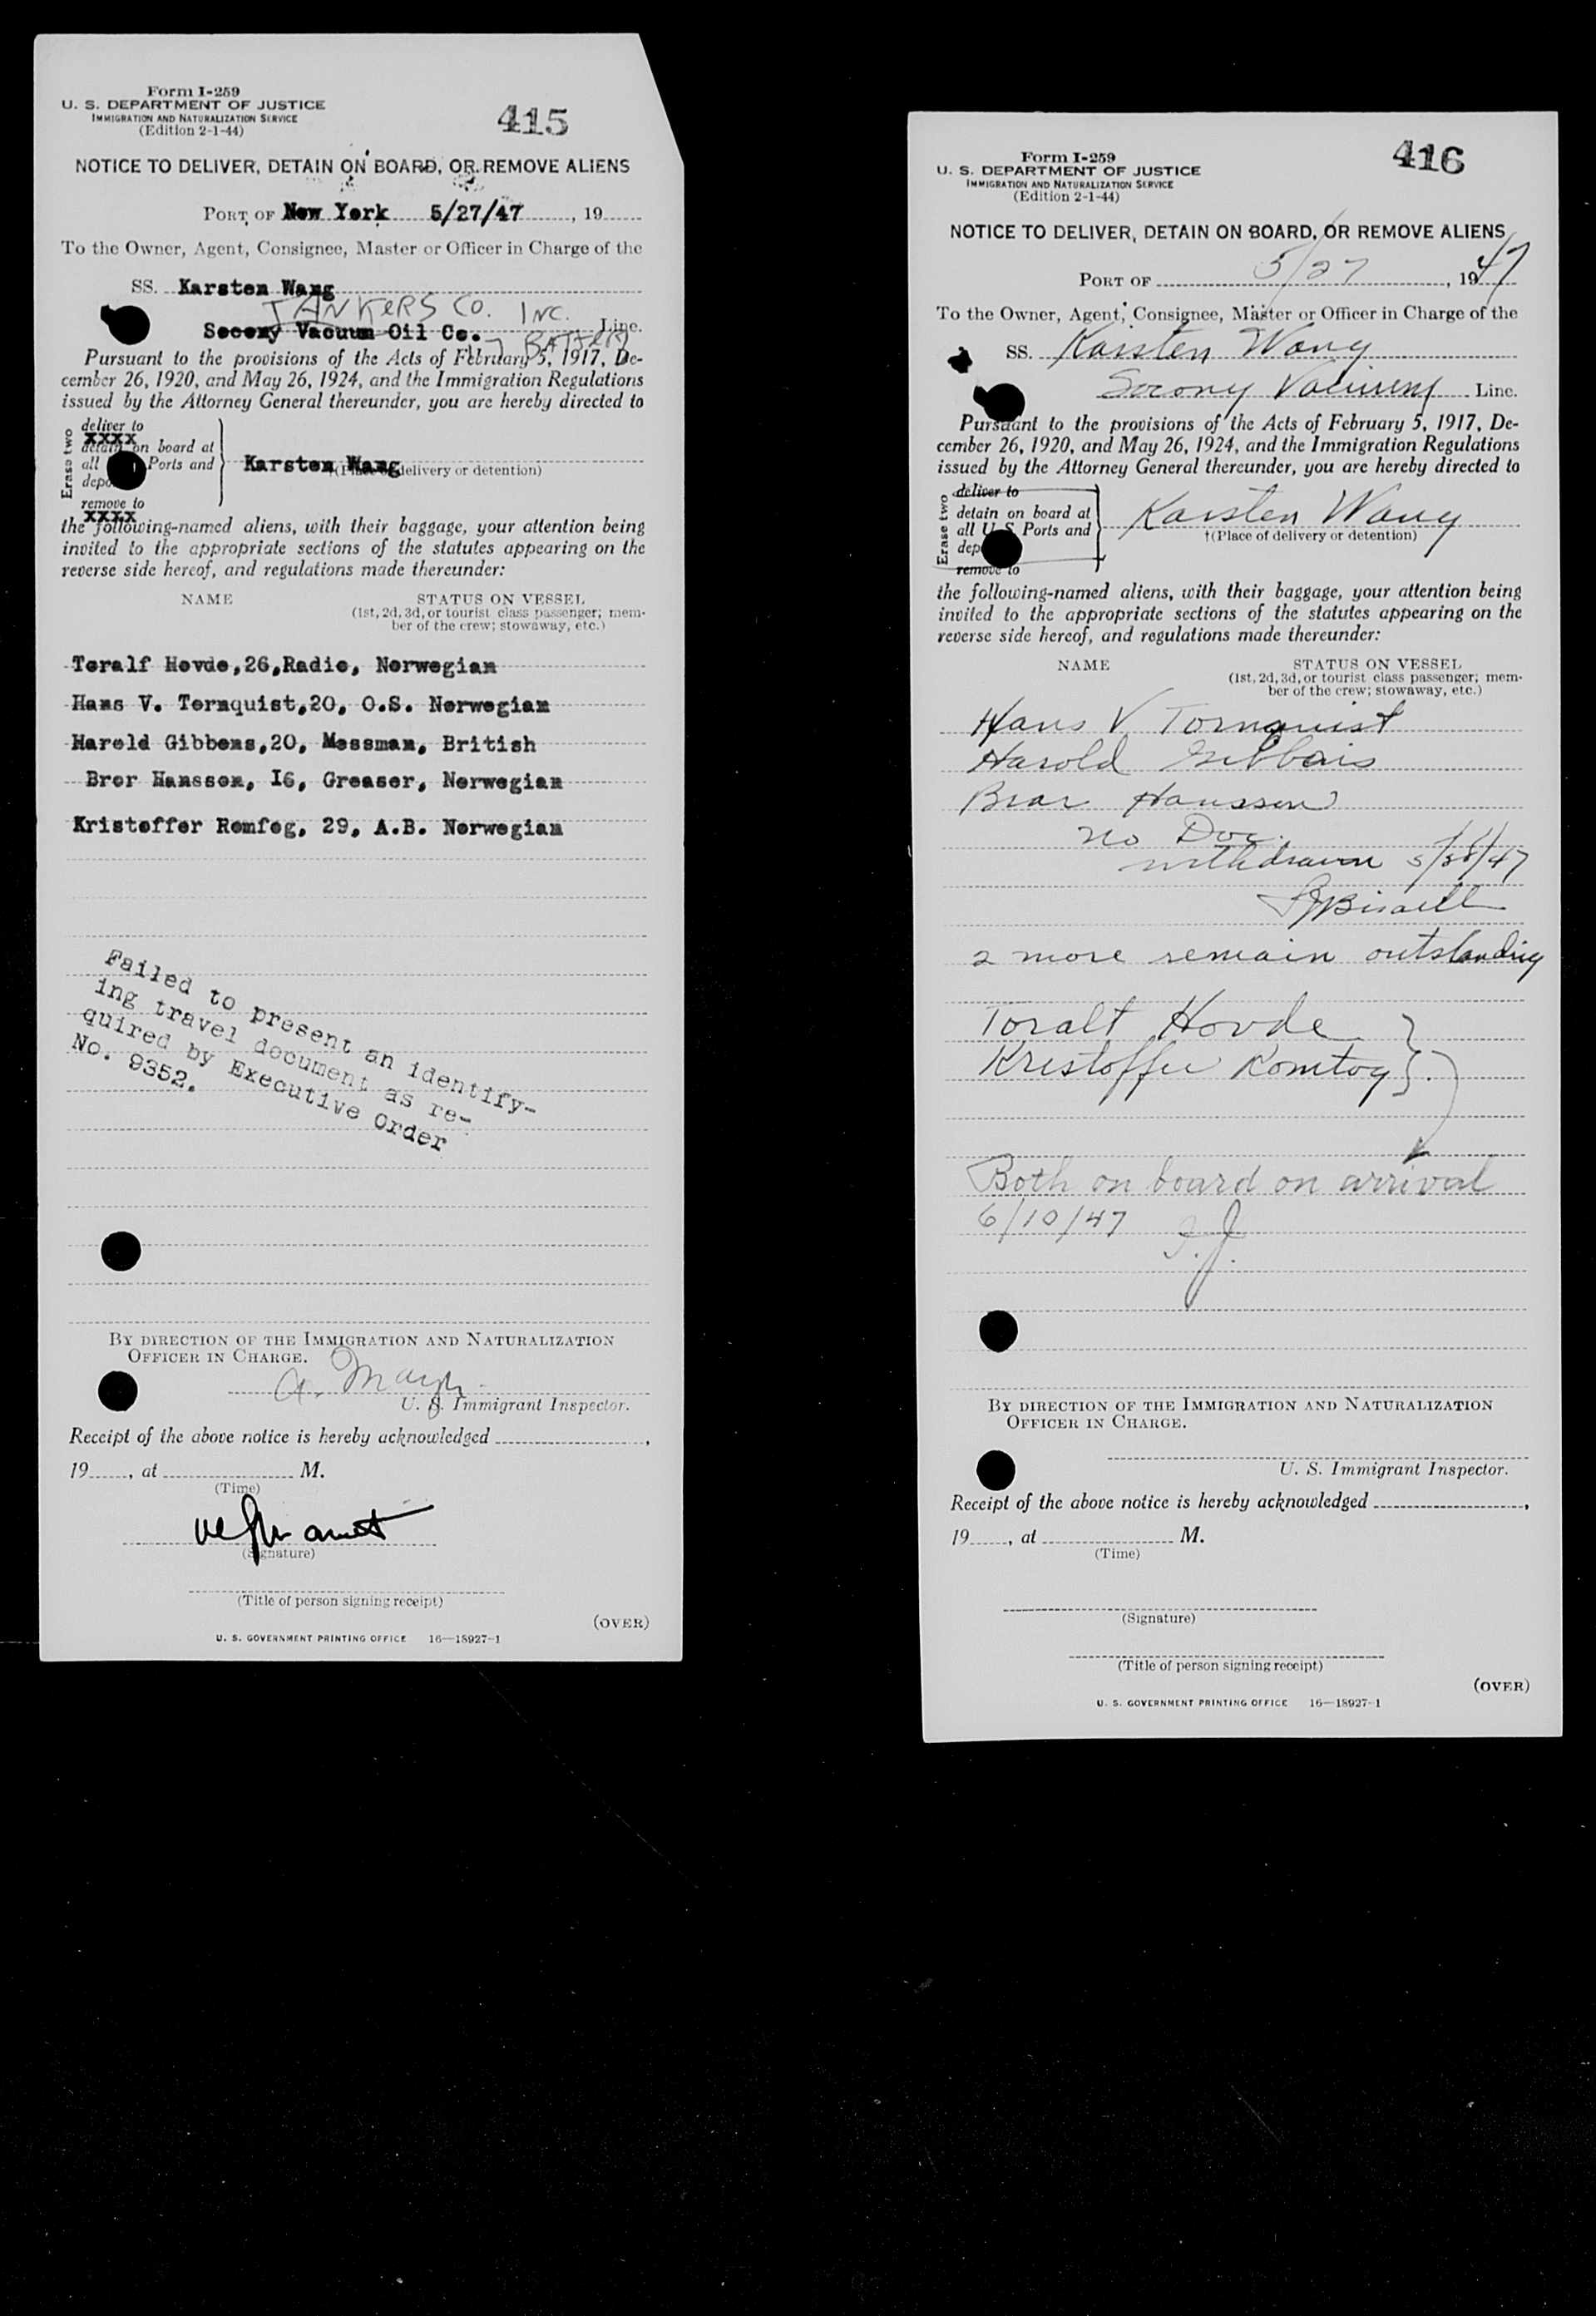 Form I-259
U. S. DEPARTMENT OF JUSTICE
IMMIGRATION AND NATURALIZATION SERVICE
(Edition 2-1-44)
415
NOTICE TO DELIVER, DETAIN ON BOARD, OR REMOVE ALIENS
PORT OF New York 5/27/47, 19
To the Owner, Agent, Consignee, Master or Officer in Charge of the
SS. Karsten Wang
TANKERS CO. INC.
Socony Vacuum Oil Co. Line.
17 BATTERY
Pursuant to the provisions of the Acts of February 5, 1917, De-
cember 26, 1920, and May 26, 1924, and the Immigration Regulations
issued by the Attorney General thereunder, you are hereby directed to
Erase two
deliver to
xxxx
detain on board at
all Ports and
Karsten Wang
(Place of delivery or detention)
remove to
xxxx
the following-named aliens, with their baggage, your attention being
invited to the appropriate sections of the statutes appearing on the
reverse side hereof, and regulations made thereunder:
NAME STATUS ON VESSEL
(1st, 2d, 3d, or tourist class passenger; mem-
ber of the crew; stowaway, etc.)
Toralf Hovde,26,Radio, Norwegian
Hans V. Tornquist,20, O.S. Norwegian
Harold Gibbons,20, Messman, British
Bror Hansson, I6, Greaser, Norwegian
Kristoffer Romfog, 29, A.B. Norwegian
Failed to present an identify-
ing travel document as re-
quired by Executive Order
No. 9352.
BY DIRECTION OF THE IMMIGRATION AND NATURALIZATION
OFFICER IN CHARGE.
U. S. Immigrant Inspector.
Receipt of the above notice is hereby acknowledged ,
19 , at M.
(Time)
(Signature)
(Title of person signing receipt)
(OVER)
U. S. GOVERNMENT PRINTING OFFICE 16—18927-1
Form I-259
U. S. DEPARTMENT OF JUSTICE
IMMIGRATION AND NATURALIZATION SERVICE
(Edition 2-1-44)
416
NOTICE TO DELIVER, DETAIN ON BOARD, OR REMOVE ALIENS
PORT OF 5/27, 1947
To the Owner, Agent, Consignee, Master or Officer in Charge of the
SS. Karsten Wang
Socony Vacuum Line.
Pursuant to the provisions of the Acts of February 5, 1917, De-
cember 26, 1920, and May 26, 1924, and the Immigration Regulations
issued by the Attorney General thereunder, you are hereby directed to
Erase two
deliver to
detain on board at
all U. S. Ports and
Karsten Wang
†(Place of delivery or detention)
remove to
the following-named aliens, with their baggage, your attention being
invited to the appropriate sections of the statutes appearing on the
reverse side hereof, and regulations made thereunder:
NAME STATUS ON VESSEL
(1st, 2d, 3d, or tourist class passenger; mem-
ber of the crew; stowaway, etc.)
Hans V Tornquist
Harold Gibbons
Bror Hanssen
no Doc.
withdrawn 5/28/47
2 more remain outstanding
Toralt Hovde
Kristoffer Romtog
Both on board on arrival
6/10/47 J.J.
BY DIRECTION OF THE IMMIGRATION AND NATURALIZATION
OFFICER IN CHARGE.
U. S. Immigrant Inspector.
Receipt of the above notice is hereby acknowledged ,
19 , at M.
(Time)
(Signature)
(Title of person signing receipt)
(OVER)
U. S. GOVERNMENT PRINTING OFFICE 16—18927-1